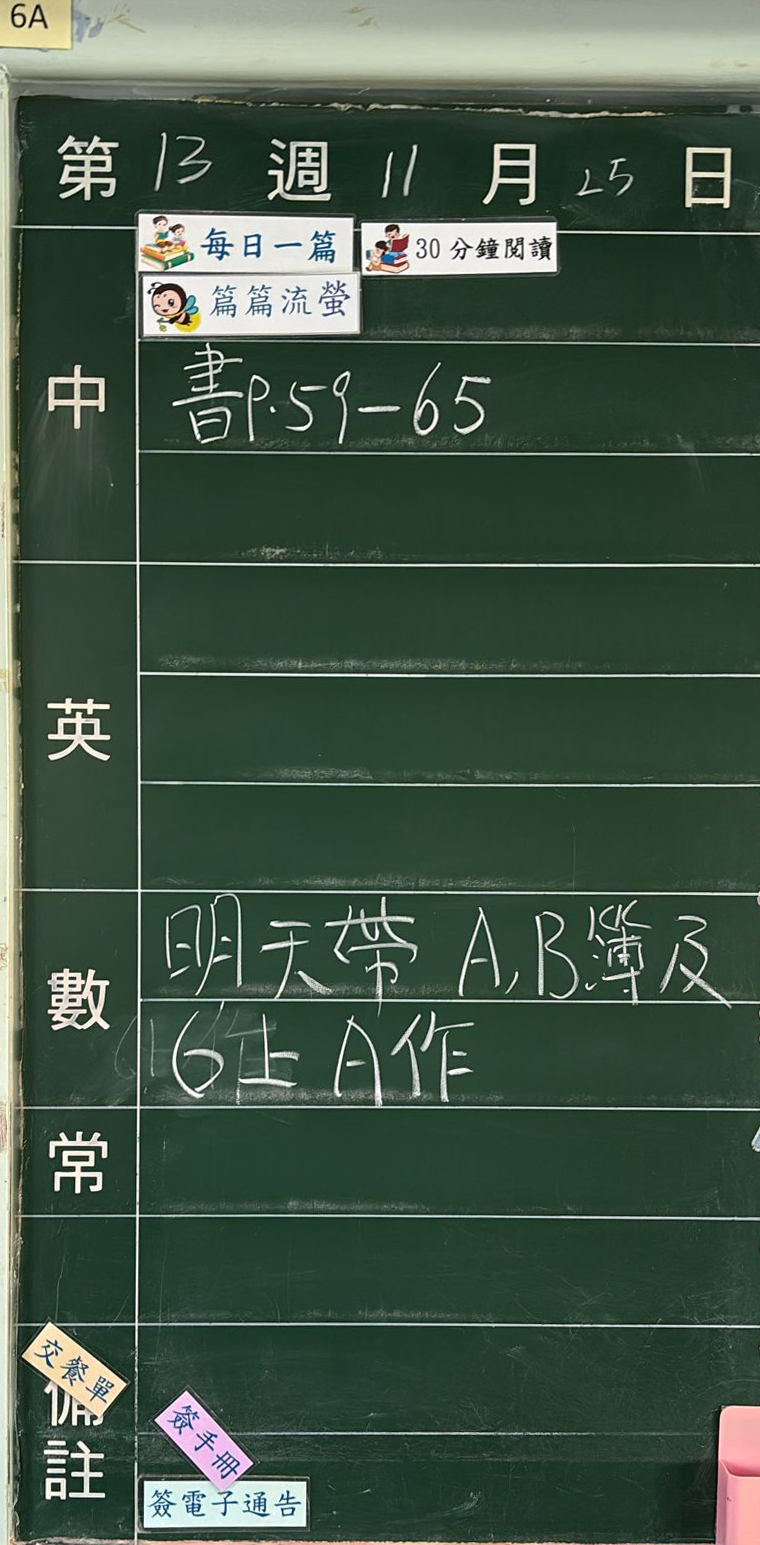 6A
第 13 週 11 月 25 日
每日一篇 30分鐘閱讀
篇篇流螢
中
書P.59-65
英
數
明天帶 A,B簿及
16上 A作
常
交餐單
備註
簽手冊
簽電子通告